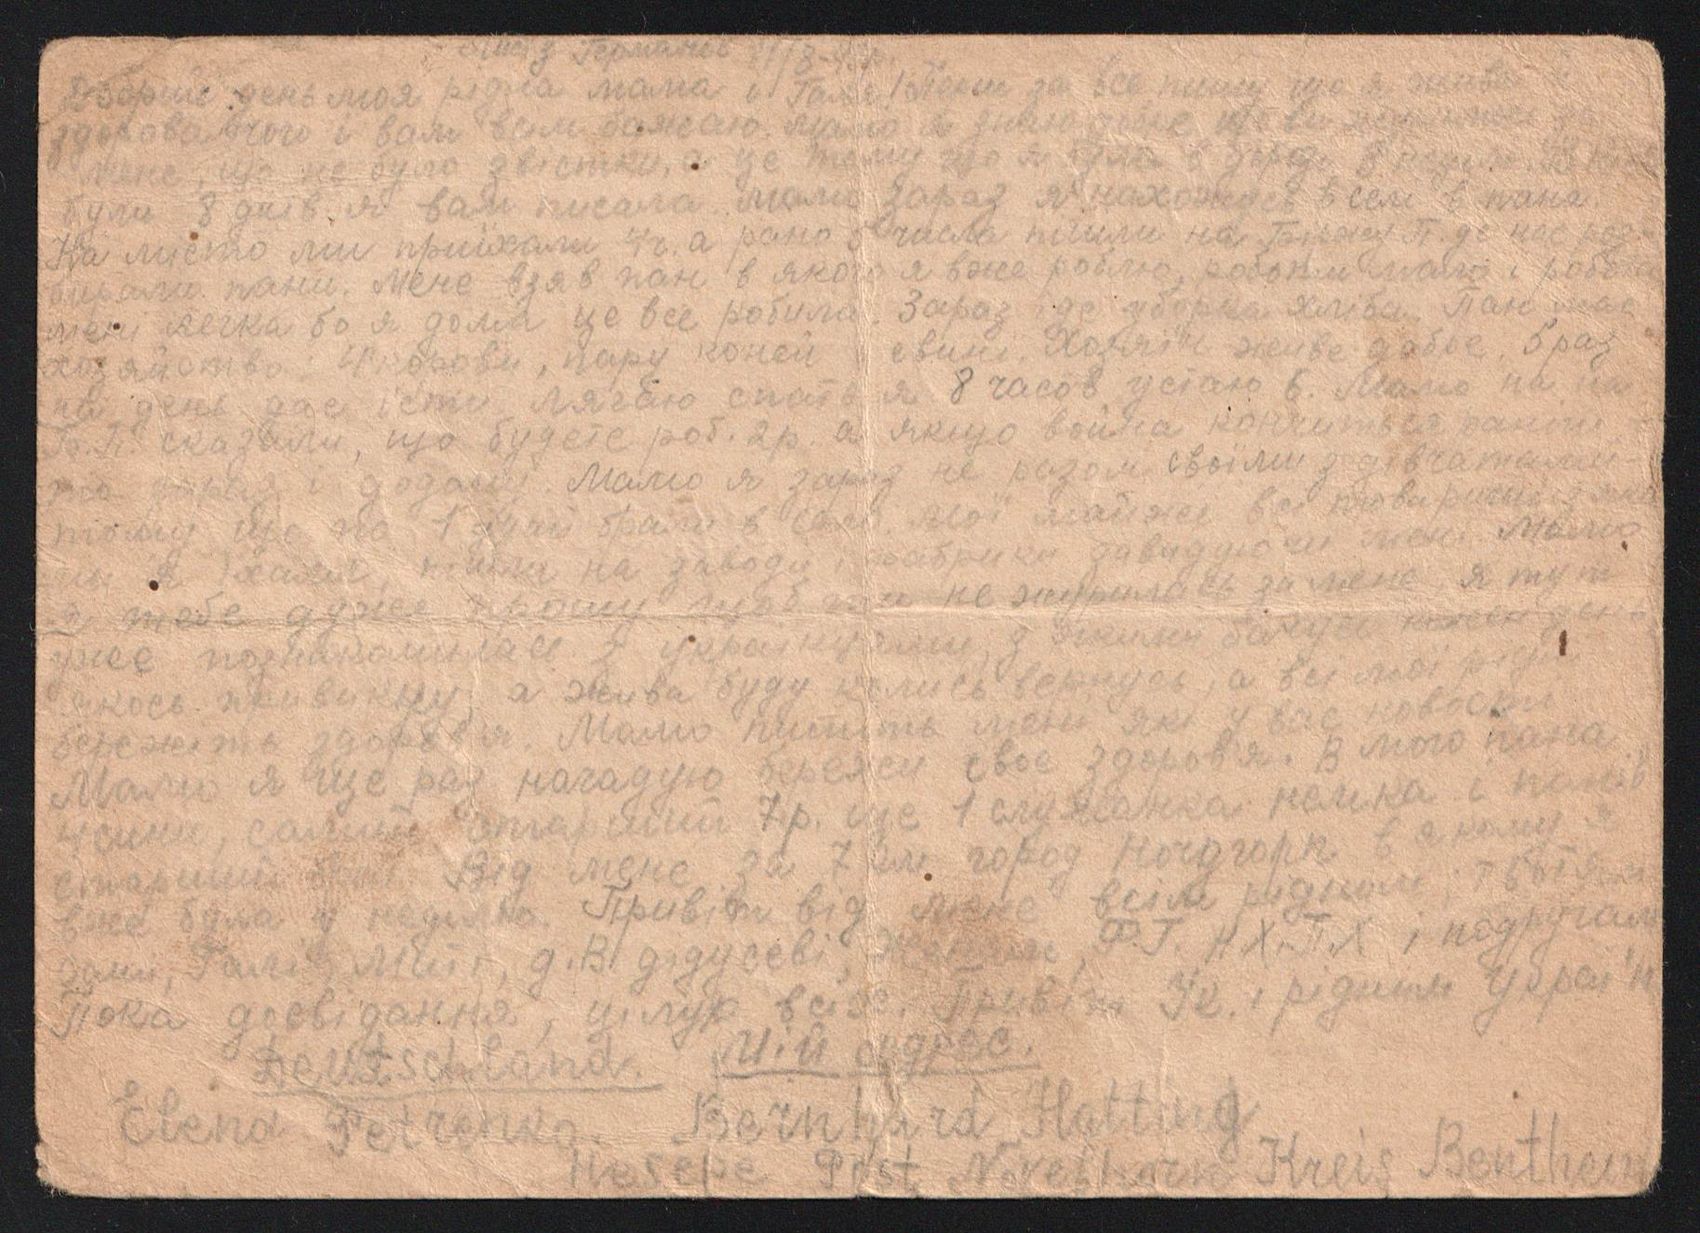 Лист з Германіє
Добрий день моя рідна мамо і Галя! Перш за все пишу що я жива і
здорова чого і вам всім бажаю. Мамо я знаю що ви журились за
мене, що не було звістки, а це тому що я була в дорозі 8
були 8 днів я вам писала. Мамо зараз я нахожусь в селі в пана.
На місто ми приїхали 4ч. а рано числа пішли на Біржу П. де нас роз-
бирали пани. Мене взяв пан в якого я вже роблю, роботи мало і робота
мені легка бо я дома це все робила. Зараз іде уборка хліба. Пан має
хозяйство: 4 корови, пару коней і свині. Хазяїн живе добре. 5 раз
на день дає їсти лягаю спать я 8 часов устаю 6. Мамо на
Б.П. сказали, що будете роб. 2р. а якщо война кончиться раніш
то зараз і додому. Мамо я зараз не разом своїми з дівчатами
тому що по 1 душі брали в село. Мої майже всі товаришки з яки
ми я їхала, пішли на заводи і фабрики завидуючи мені. Мамо
я тебе дуже прошу щоб ти не журилась за мене. я тут
уже познакомилась з українцями, з якими бачусь кожен день
якось привикну, а жива буду колись вернусь, а всі мої рідні
бережіть здоров'я. Мамо пишіть мені які у вас новости
Мамо я ще раз нагадую бережи своє здоров'я. В мого пана
4 сини, самий старший 7р. ще 1 служанка немка і панів
старший Від мене за 7 км город Нордгорн в якому я
вже була у неділю. Привіт від мене всім рідним,
Галі, Миті, д.В. дідусеві, ФГ. НХ.ПХ і подругам
Пока досвідання, цілую всіх. Привіт Ук. і рідним Україн
Deutschland. Мій адрес.
Elena Petrenko. Bernhard Hatting
Hesepe Post Nordhorn Kreis Bentheim